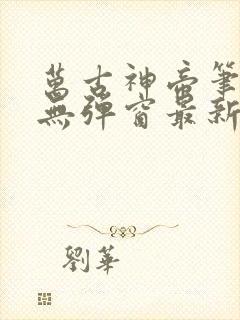 萬古神帝筆
無彈窗最新
劉華